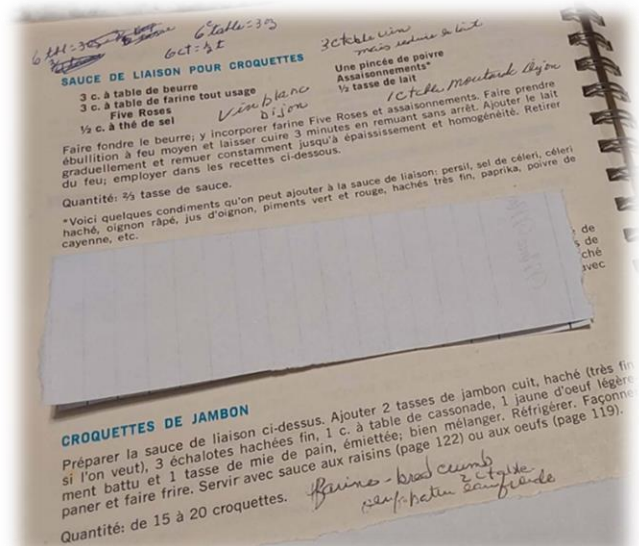 6 c table = 3 oz
6 ct = ½ t
3 c table vin
mais réduire le lait
SAUCE DE LIAISON POUR CROQUETTES
3 c. à table de beurre
3 c. à table de farine tout usage
Five Roses
½ c. à thé de sel
Vin blanc
Dijon
Une pincée de poivre
Assaisonnements*
½ tasse de lait
1 c table moutarde Dijon
Faire fondre le beurre; y incorporer farine Five Roses et assaisonnements. Faire prendre
ébullition à feu moyen et laisser cuire 3 minutes en remuant sans arrêt. Ajouter le lait
graduellement et remuer constamment jusqu'à épaississement et homogénéité. Retirer
du feu; employer dans les recettes ci-dessous.
Quantité: ⅔ tasse de sauce.
*Voici quelques condiments qu'on peut ajouter à la sauce de liaison: persil, sel de céleri, céleri
haché, oignon râpé, jus d'oignon, piments vert et rouge, hachés très fin, paprika, poivre de
cayenne, etc.
de
de
ché
avec
CROQUETTES DE JAMBON
Préparer la sauce de liaison ci-dessus. Ajouter 2 tasses de jambon cuit, haché (très fin
si l'on veut), 3 échalotes hachées fin, 1 c. à table de cassonade, 1 jaune d'oeuf légère
ment battu et 1 tasse de mie de pain, émiettée; bien mélanger. Réfrigérer. Façonner
paner et faire frire. Servir avec sauce aux raisins (page 122) ou aux oeufs (page 119).
Quantité: de 15 à 20 croquettes.
Farine - bread crumb
oeuf battu 2 c table
eau froide